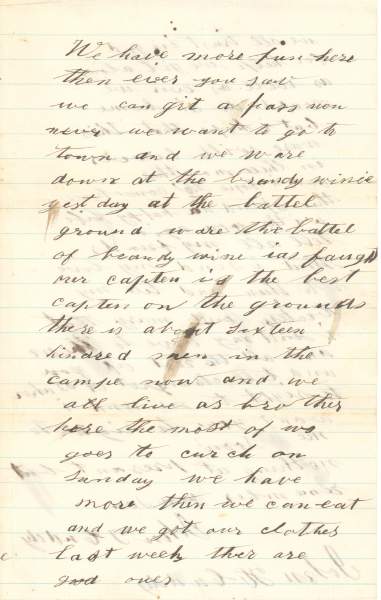 We have more fun here
then ever you saw
we can git a pass
never we want to go to
town and we ware
down at the brandy wine
yest day at the battel
ground ware the battel
of brandy wine was
our capten is the best
capten on the grounds
there is about sixteen
hindred men in the
campe now and we
all live as brothers
here the most of us
goes to curch on
Sunday we have
more then we can eat
and we got our clothes
last week ther are
good ones